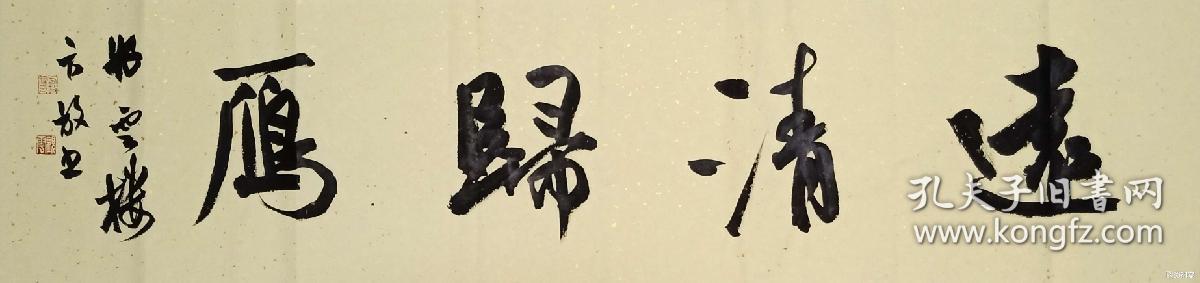 遠清歸雁
雲樓
方放书
孔夫子旧书网
www.kongfz.com